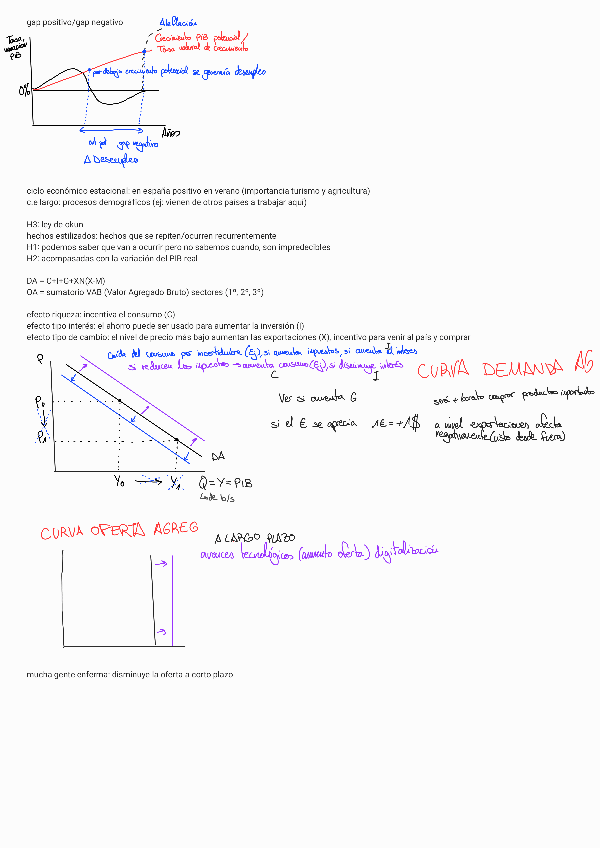 gap positivo/gap negativo
Δ Inflación
Tasa variación PIB
Crecimiento PIB potencial/
Tasa natural de crecimiento
por debajo crecimiento potencial se generaría desempleo
0%
Años
gap negativo
Δ Desempleo
ciclo económico estacional: en españa positivo en verano (importancia turismo y agricultura)
c.e largo: procesos demográficos (ej: vienen de otros paises a trabajar aquí)
H3: ley de okun
hechos estilizados: hechos que se repiten/ocurren recurrentemente
H1: podemos saber que van a ocurrir pero no sabemos cuándo, son impredecibles
H2: acompasadas con la variación del PIB real
DA = C+I+G+XN(X-M)
OA = sumatorio VAB (Valor Agregado Bruto) sectores (1º, 2º, 3º)
efecto riqueza: incentiva el consumo (C)
efecto tipo interés: el ahorro puede ser usado para aumentar la inversión (I)
efecto tipo de cambio: el nivel de precio más bajo aumentan las exportaciones (X), incentivo para venir al país y comprar
Caída del consumo por incertidumbre (Ej), si aumentan impuestos, si aumenta el interés
si reducen los impuestos → aumenta consumo (Ej), si disminuye interés
C
I
CURVA DEMANDA AG
P
Ver si aumenta G
será + barato comprar productos importados
P₀
si el € se aprecia 1€ = +1$
a nivel exportaciones afecta
negativamente (visto desde fuera)
P₁
DA
Y₀ → Y₁ Q = Y = PIB
b/s
CURVA OFERTA AGREG
A LARGO PLAZO
avances tecnológicos (aumento oferta) digitalización
mucha gente enferma: disminuye la oferta a corto plazo